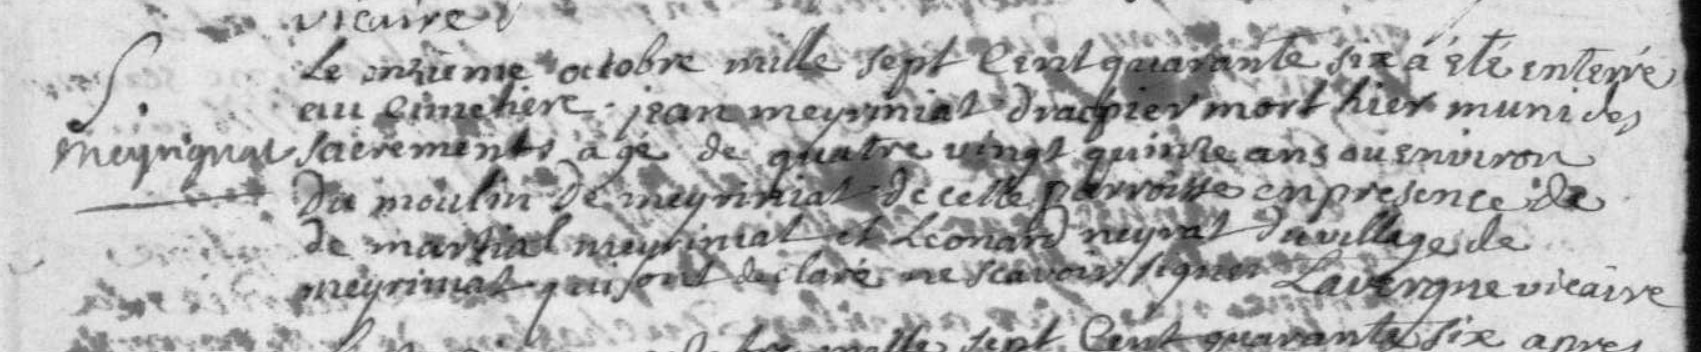 vicaire
Le onzieme octobre mille sept Cent quarante six a été enterré
au cimetiere jean meyriniat drappier mort hier muni des
S.
meyrignat sacrements agé de quatre vingt quinze ans ou environ
Du moulin de meyriniat de cette parroisse en presence de
de martial meyriniat et Leonard neyrat du village de
meyriniat qui ont declaré ne scavoir signer Lavergne vicaire
mille sept Cent quarante six apres